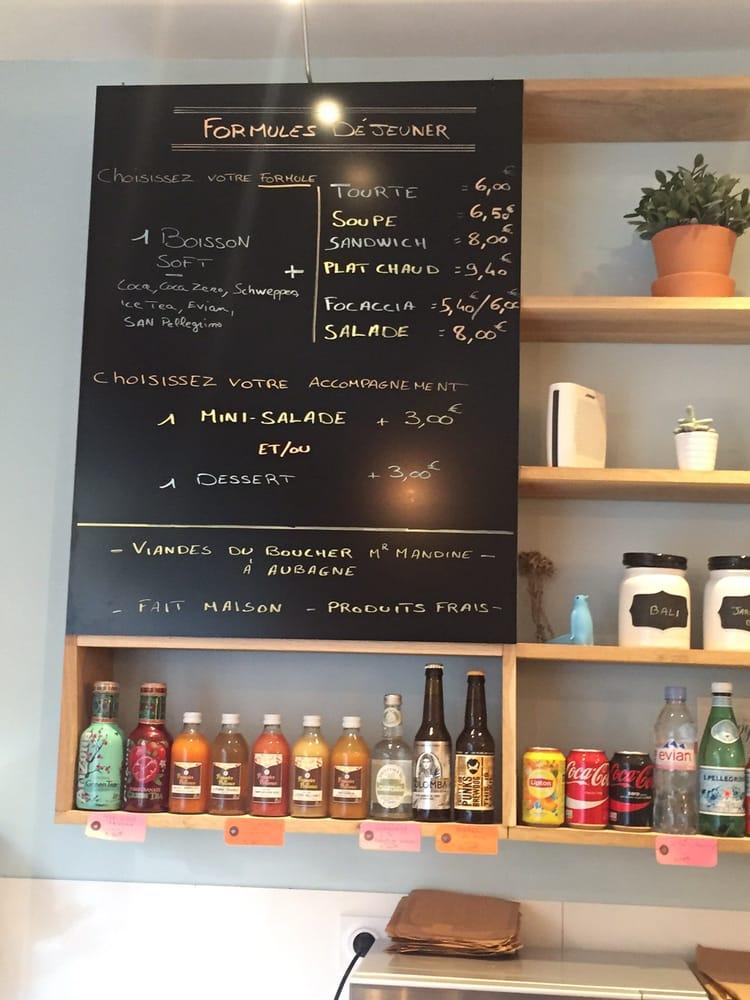 FORMULES DÉJEUNER
CHOISISSEZ VOTRE FORMULE
1 BOISSON
SOFT
Coca, Coca Zero, Schweppes,
Ice Tea, Evian,
SAN Pellegrino
+
TOURTE = 6,00€
SOUPE = 6,50€
SANDWICH = 8,00€
PLAT CHAUD = 9,40€
FOCACCIA = 5,40/6,00€
SALADE = 8,00€
CHOISISSEZ VOTRE ACCOMPAGNEMENT
1 MINI-SALADE + 3,00€
ET/OU
1 DESSERT + 3,00€
- VIANDES DU BOUCHER MR MANDINE -
À AUBAGNE
- FAIT MAISON - PRODUITS FRAIS -
BALI
Green Tea
POMEGRANATE
GREEN TEA
COLOMBA
PUNK
BREWDOG
Lipton
Coca-Cola
Coca-Cola
zero
evian
S.PELLEGRINO